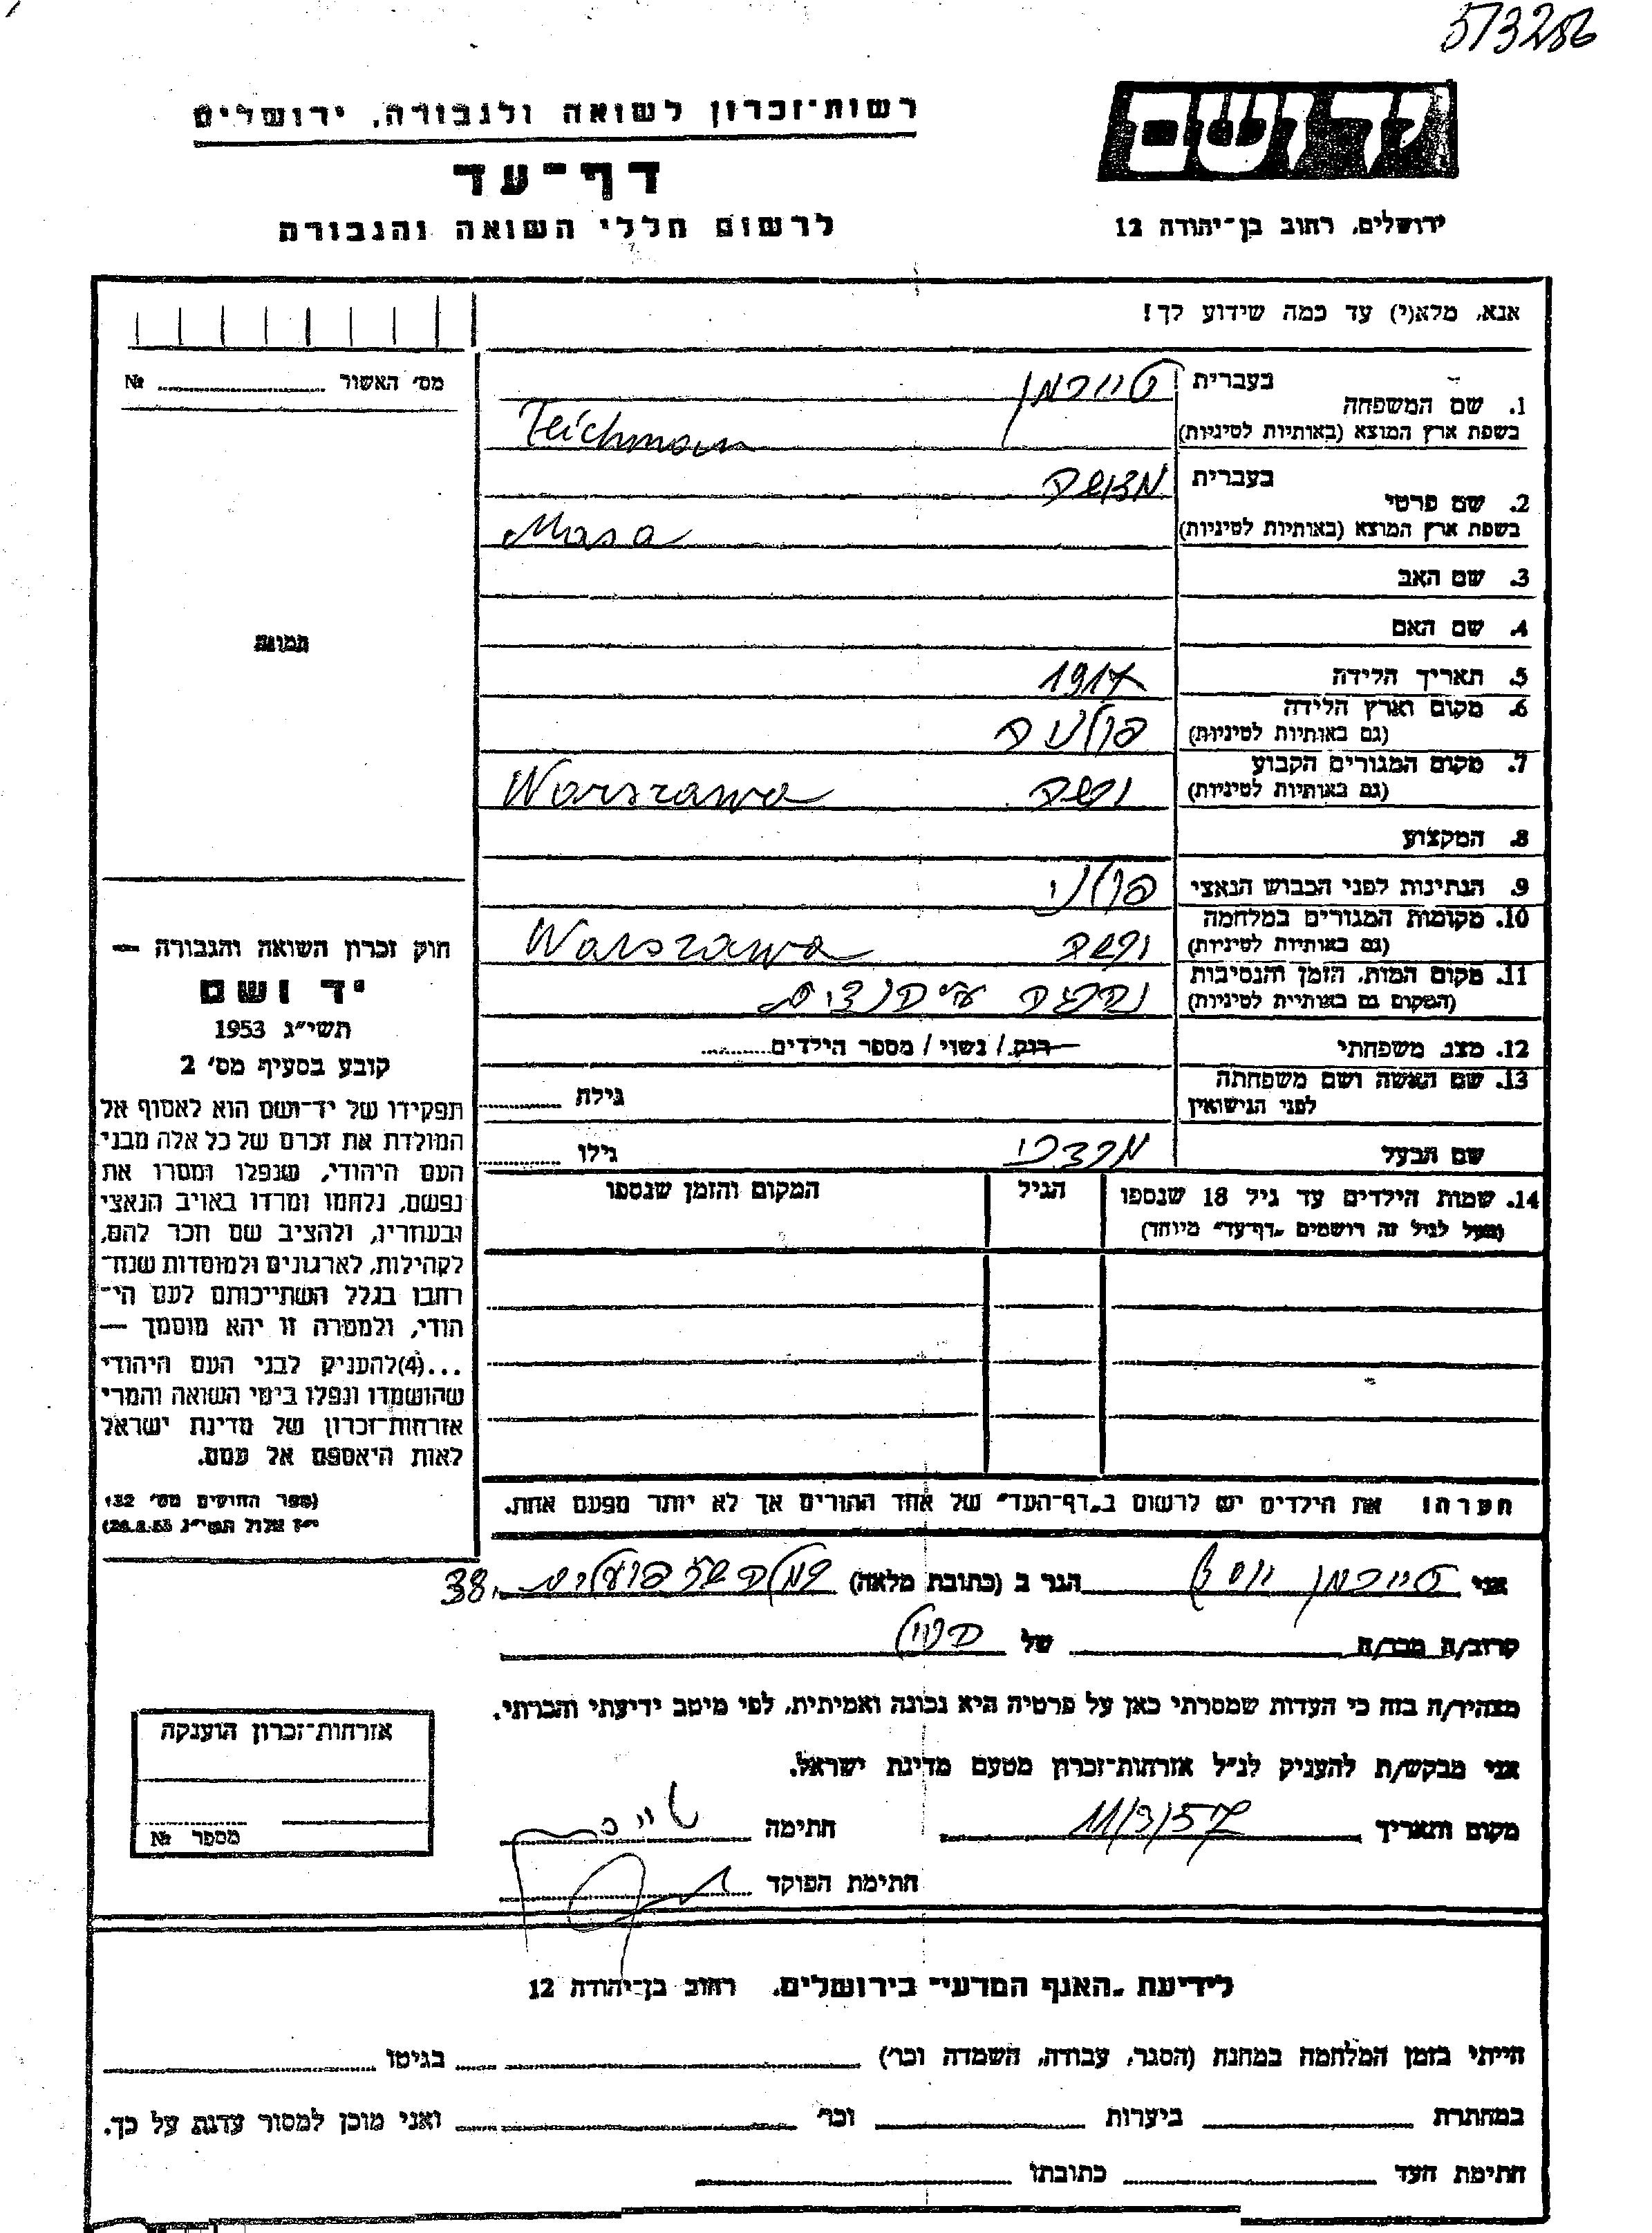 573286
רשות־זכרון לשואה ולגבורה, ירושלים
יד ושם
דף־עד
לרשום חללי השואה והגבורה
ירושלים, רחוב בן־יהודה 12
אנא, מלא(י) עד כמה שידוע לך!
מס׳ האשור № 
1. שם המשפחה
בעברית טייכמן
בשפת ארץ המוצא (באותיות לטיניות) Teichman
2. שם פרטי
בעברית
בשפת ארץ המוצא (באותיות לטיניות) Masa
3. שם האב
4. שם האם
תמונה
5. תאריך הלידה 1917
6. מקום וארץ הלידה
(גם באותיות לטיניות) פולניה
7. מקום המגורים הקבוע
(גם באותיות לטיניות) ורשה Warszawa
8. המקצוע
9. הנתינות לפני הכבוש הנאצי פולני
10. מקומות המגורים במלחמה
(גם באותיות לטיניות) ורשה Warszawa
11. מקום המות, הזמן והנסיבות
(המקום גם באותיות לטיניות)
12. מצב משפחתי רווק / נשוי / מספר הילדים
13. שם האשה ושם משפחתה
לפני הנישואין גילה
שם הבעל מרדכי גילו
14. שמות הילדים עד גיל 18 שנספו הגיל המקום והזמן שנספו
(מעל לגיל זה רושמים „דף־עד״ מיוחד)
חוק זכרון השואה והגבורה —
יד ושם
תשי״ג 1953
קובע בסעיף מס׳ 2
תפקידו של יד־ושם הוא לאסוף אל
המולדת את זכרם של כל אלה מבני
העם היהודי, שנפלו ומסרו את
נפשם, נלחמו ומרדו באויב הנאצי
ובעוזריו, ולהציב שם וזכר להם,
לקהילות, לארגונים ולמוסדות שנח־
רבו בגלל השתייכותם לעם הי־
הודי, ולמטרה זו יהא מוסמך —
...(4)להעניק לבני העם היהודי
שהושמדו ונפלו בימי השואה והמרי
אזרחות־זכרון של מדינת ישראל
לאות היאספם אל עמם.
(ספר החוקים מס׳ 132
י״ז אלול תשי״ג 26.8.53)
הערה: את הילדים יש לרשום ב„דף־העד״ של אחד ההורים אך לא יותר מפעם אחת.
אני טייכמן יוסף הגר ב (כתובת מלאה) 38
קרוב/ה מכר/ה של
מצהיר/ה בזה כי העדות שמסרתי כאן על פרטיה היא נכונה ואמיתית, לפי מיטב ידיעתי והכרתי.
אני מבקש/ת להעניק לנ״ל אזרחות־זכרון מטעם מדינת ישראל.
מקום ותאריך 11/3/57 חתימה
חתימת הפוקד
אזרחות־זכרון הוענקה
מספר №
לידיעת „האגף המדעי״ בירושלים, רחוב בן־יהודה 12
הייתי בזמן המלחמה במחנה (הסגר, עבודה, השמדה וכו׳) בגיטו
במחתרת ביערות וכו׳ ואני מוכן למסור עדות על כך.
חתימת העד כתובתו